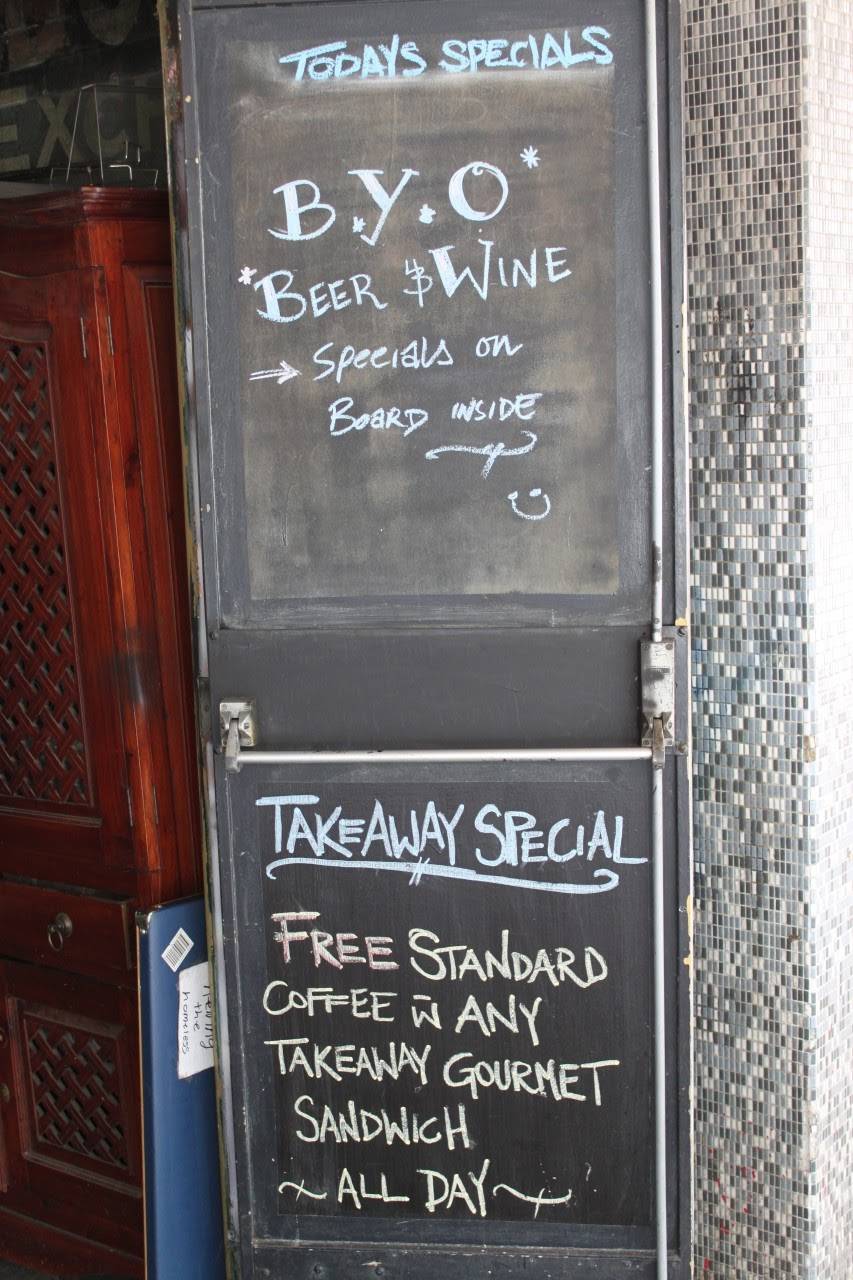 TODAYS SPECIALS
B.Y.O*
*BEER & WINE
→ Specials on
BOARD INSIDE
TAKEAWAY SPECIAL
FREE STANDARD
COFFEE w̄ ANY
TAKEAWAY GOURMET
SANDWICH
~ ALL DAY ~
the
homeless